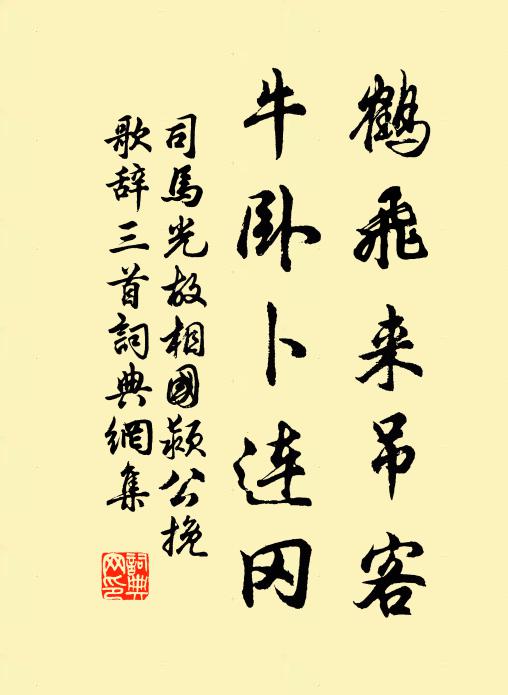 鹤飛来吊客
牛卧卜连冈
司馬光故相國颍公挽
歌辞三首詞典網集
詞典网印